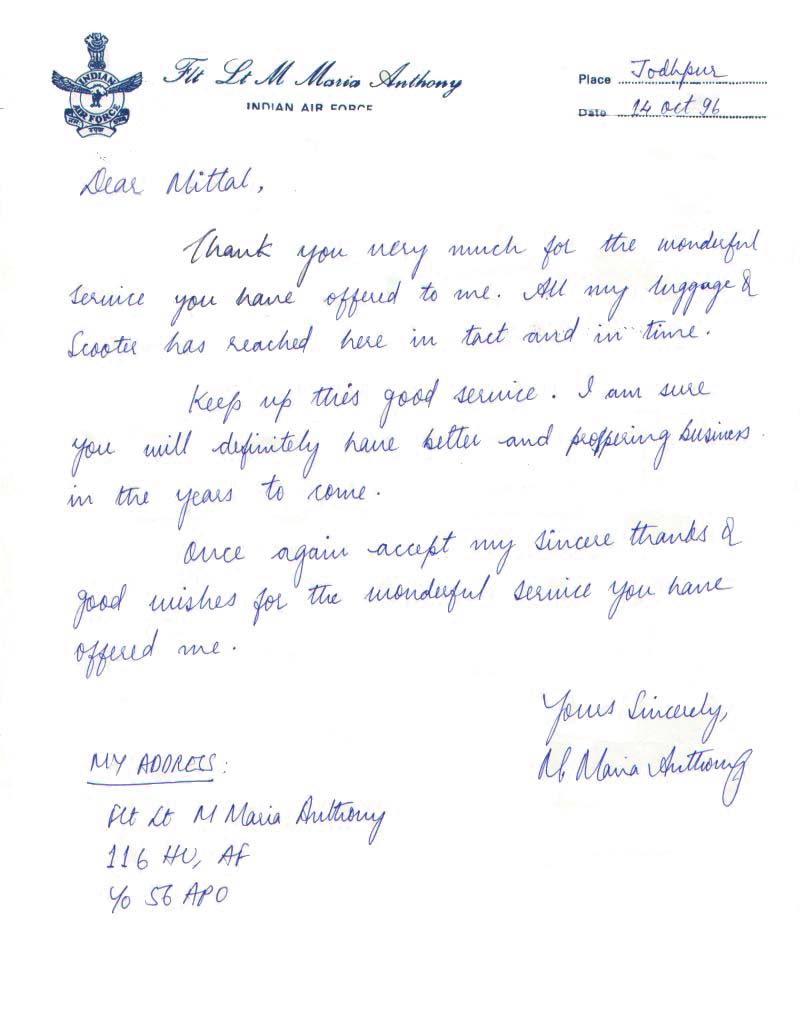 INDIAN
AIR FORCE
Flt Lt M Maria Anthony
INDIAN AIR FORCE
Place Jodhpur
Date 14 Oct 96
Dear Mittal,
Thank you very much for the wonderful
service you have offered to me. All my luggage &
Scooter has reached here in tact and in time.
Keep up this good service. I am sure
you will definitely have better and prospering business
in the years to come.
Once again accept my sincere thanks &
good wishes for the wonderful service you have
offered me.
Yours Sincerely,
M. Maria Anthony
MY ADDRESS:
Flt Lt M Maria Anthony
116 HU, AF
C/o 56 APO